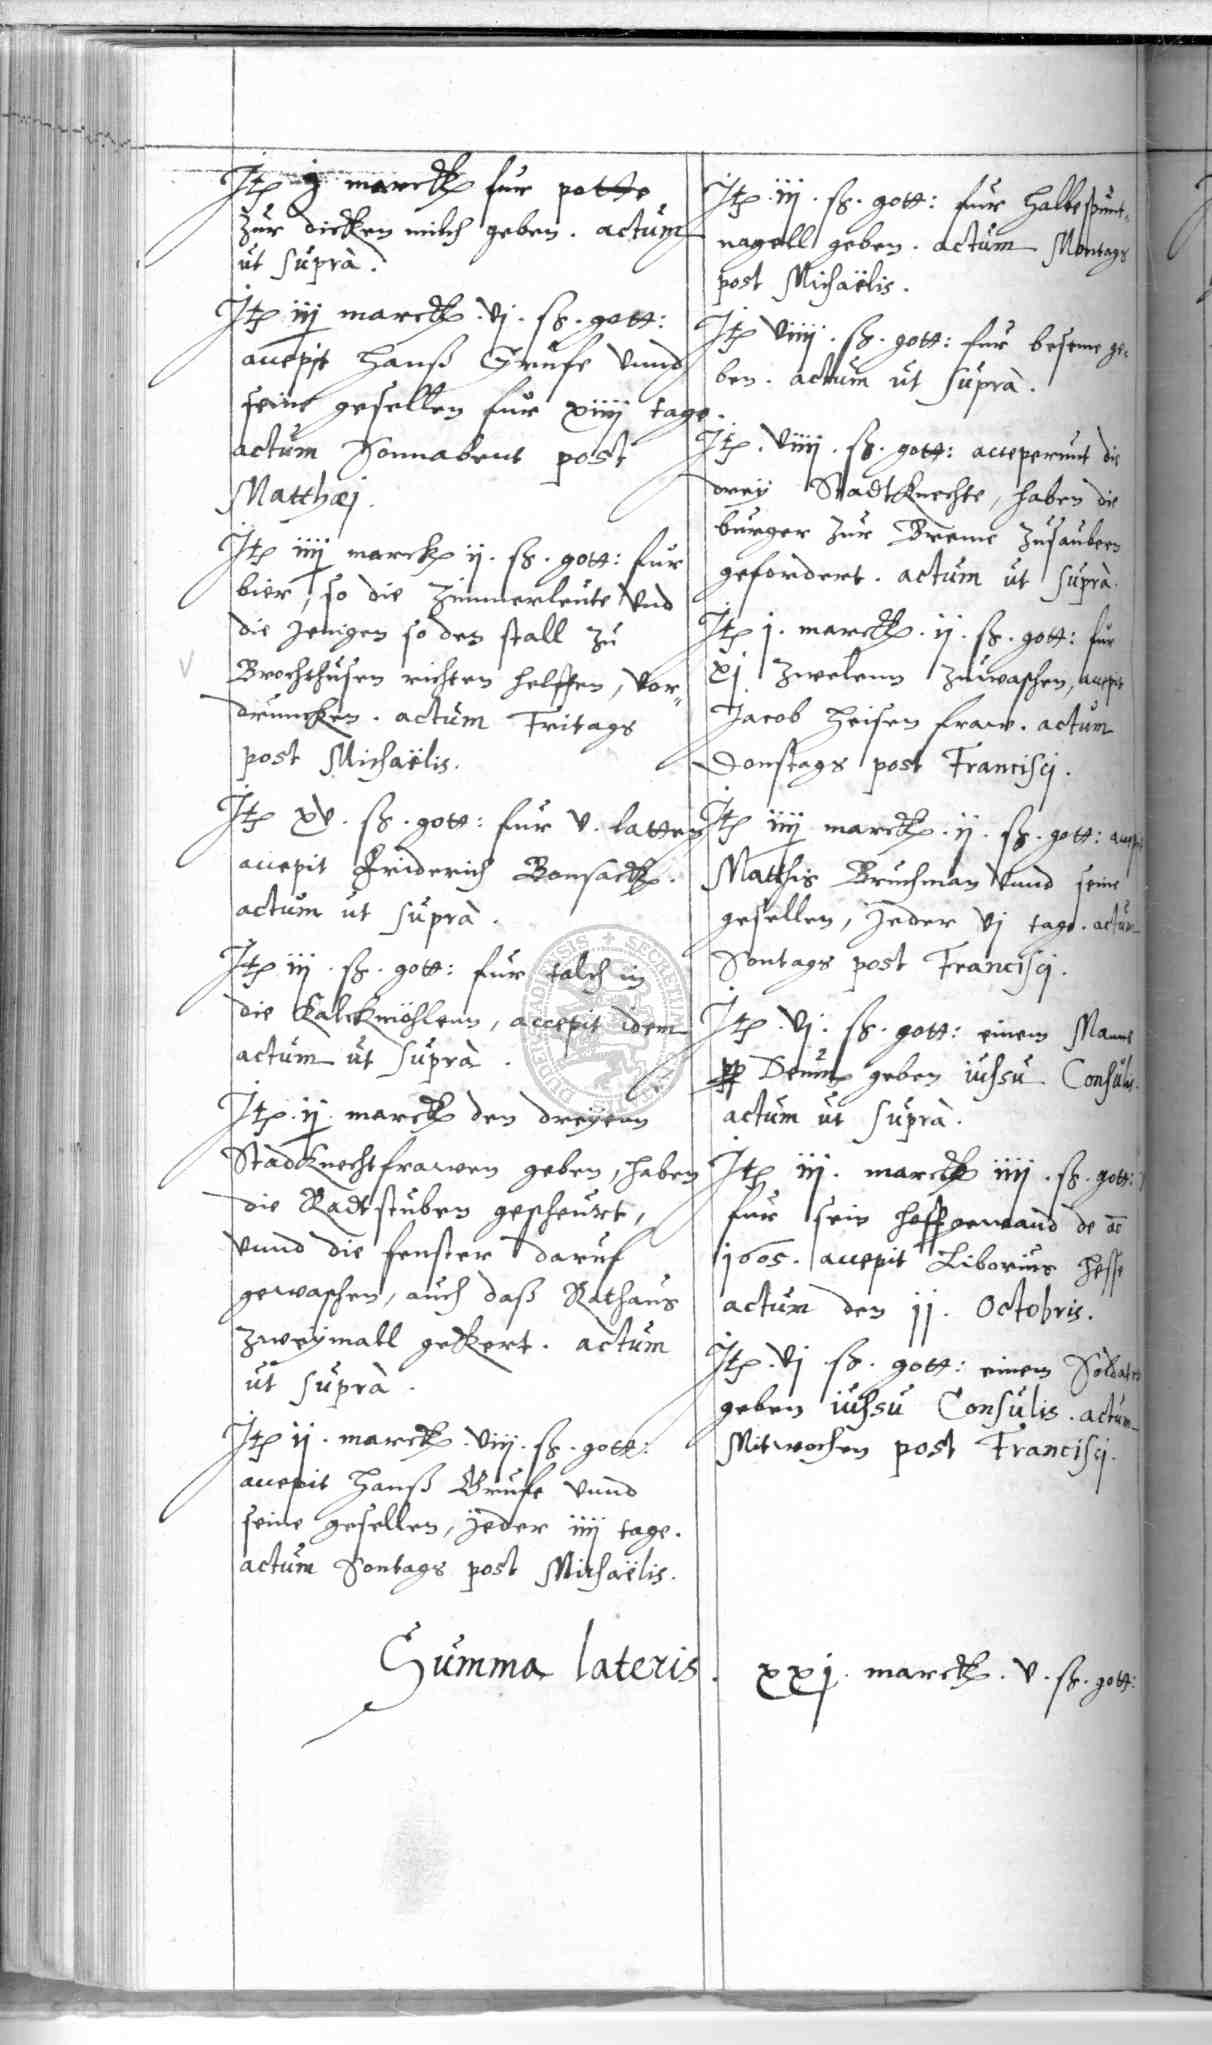 Itm j marck fur potte
zur dicken milch geben. actum
ut supra.
Itm iij marck. vj. ß. gott:
accepit Hanß Grufe vnnd
seine gesellen fur xiiij tage.
actum Sonnabent post
Matthæj.
Itm iiij marck ij. ß. gott: fur
bier, so die Zimmerleute vnd
die Jenigen so den stall zu
Brochthusen richten helffen, vor-
druncken. actum Fritags
post Michaëlis.
Itm xv. ß. gott: fur v. latten
accepit Friderich Bonsack.
actum ut supra.
Itm iij. ß. gott: fur talch in
die Kalckmöhlenn, accepit idem
actum ut supra.
Itm. ij marck den dreyenn
Stadtknechtfrawen geben, haben
die Radtstuben gescheurt,
vnnd die fenster daruf
gewaschen, auch daß Rathaus
zweymall gekert. actum
ut supra.
Itm ij. marck. viij. ß. gott:
accepit Hanß Grufe vnnd
seine gesellen, jeder iiij tage.
actum Sontags post Michaëlis.
Itm. iij. ß. gott: fur halbespunt-
nagell geben. actum Montags
post Michaëlis.
Itm viiij. ß. gott: fur beseme ge-
ben. actum ut supra.
Itm. viiij. ß. gott: acceperunt die
drey Stadtknechte, haben die
burger zur Breme zusaubern
gefordert. actum ut supra.
Itm j. marck. ij. ß. gott: fur
xj zwelenn zuwaschen, accepit
Jacob Heisen fraw. actum
Donstags post Francisci.
Itm iiij marck. ij. ß. gott: accepit
Matthis Bruchman vnnd seine
gesellen, Jeder vj tage. actum
Sontags post Francisci.
Itm. vj. ß. gott: einem Manne
geben iussu Consulis.
actum ut supra.
Itm iij. marck iiij. ß. gott:
fur sein hoffgewand de ao
1605. accepit Liborius Hesse
actum den 11. Octobris.
Itm. vj ß. gott: einem Soldaten
geben iussu Consulis. actum
Mitwochen post Francisci.
Summa lateris. xxj. marck. v. ß. gott: